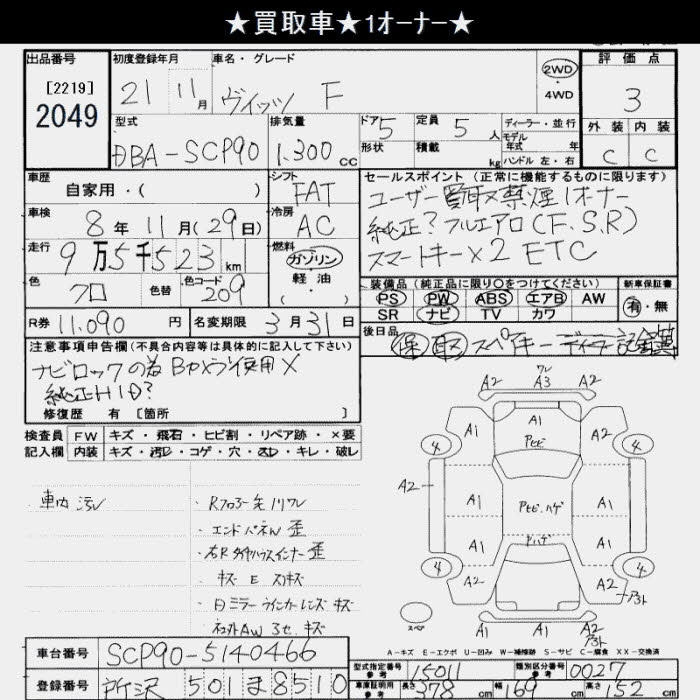 ★買取車★1オーナー★
出品番号 初度登録年月 車名・グレード 評価点
[2219]
2049
21 11月 ヴィッツ F
2WD
・
4WD
3
外装 内装
C C
型式 排気量 ドア 5 定員 5人 ディーラー・並行
モデル年式 年
DBA-SCP90 1.300cc 形状 積載 kg ハンドル 左・右
車歴 シフト
自家用・( ) FAT
車検 冷房
8年11月(29日) AC
走行 燃料
9万5千523km ガソリン
軽油
・( )
色 クロ 色替 色コード 209
R券 11,090円 名変期限 3月31日
セールスポイント (正常に機能するものに限ります)
ユーザー買取 禁煙 1オーナー
純正?フルエアロ(F.S.R)
スマートキー×2 ETC
装備品 (純正品に限り○をつけてください) 新車保証書
PS PW ABS エアB AW 有・無
SR ナビ TV カワ
後日品
保 取 スペアキー ディーラー記録簿
注意事項申告欄(不具合内容等は具体的に記入して下さい)
ナビロックの為Bカメラ使用×
純正HID?
修復歴 有 [箇所 ]
検査員 FW キズ・飛石・ヒビ割・リペア跡・×要
記入欄 内装 キズ・汚レ・コゲ・穴・スレ・キレ・破レ
車内汚レ
・エンドパネル 歪
・右Rタイヤハウスインナー歪
・キズ E スリキズ
・ドアミラーウインカーレンズ キズ
A2 A3 A2
ワレ
4 A1 A1 A2 4
アセビ
A2 A1 アセビ.ハゲ A1
A1 A1
アハゲ
4 A2 A2 4
スペア A1 A1 A2
A-キズ E-エクボ U-凹み W-補修跡 S-サビ C-腐食 XX-交換済
車台番号 SCP90-5140466
登録番号 所沢 501 ま 8510
型式指定番号 参考 15011 類別区分番号 参考 0027
車庫証明用 参考 長さ 378cm 幅 169cm 高さ 152cm